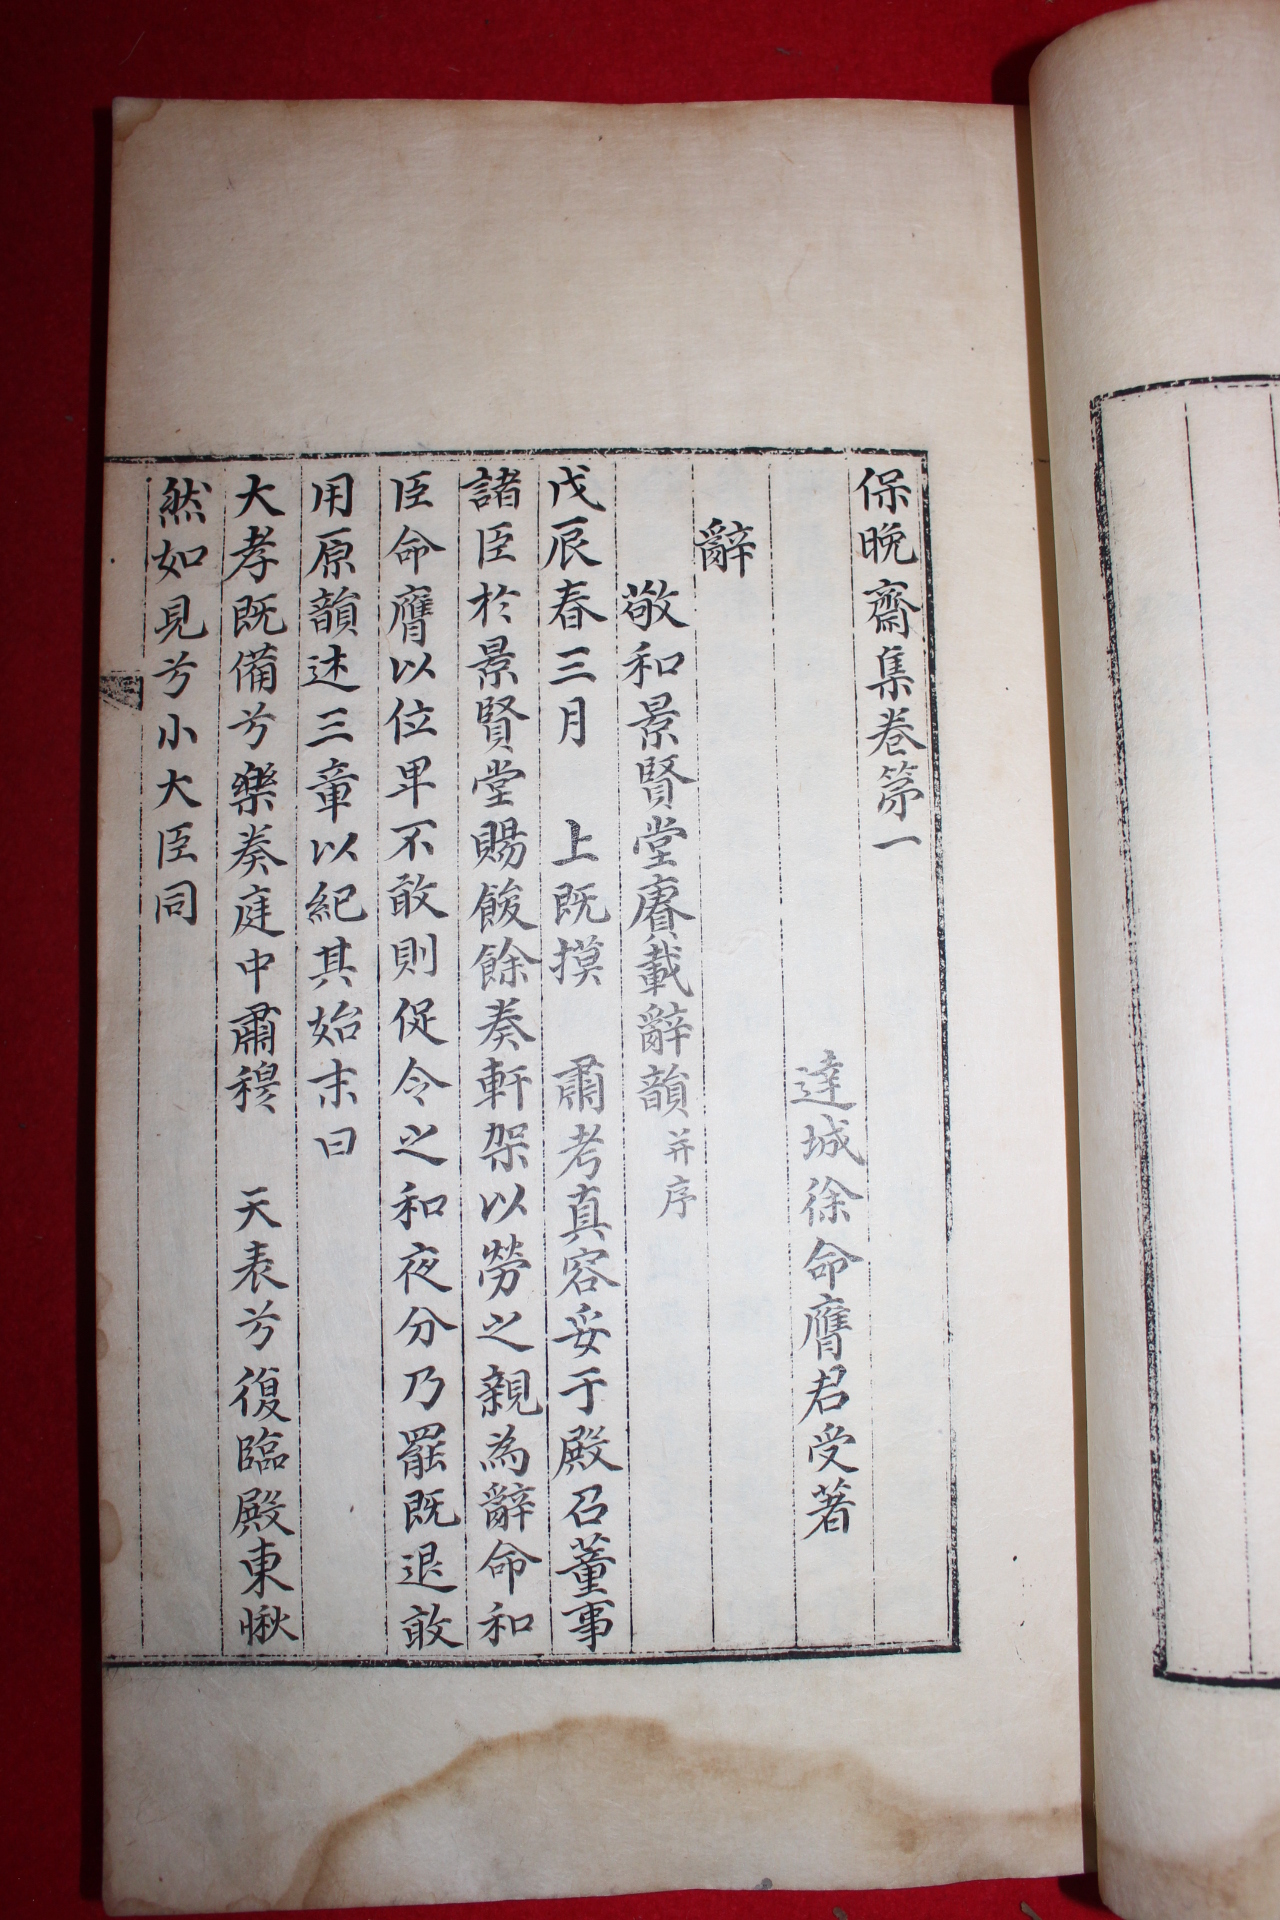 保晚齋集卷第一
達城徐命膺君受著
辭
敬和景賢堂賡載辭韻并序
戊辰春三月 上既摸 肅考真容妥于殿召董事
諸臣於景賢堂賜餕餘奏軒架以勞之親為辭命和
臣命膺以位卑不敢則促令之和夜分乃罷既退敢
用原韻述三章以紀其始末曰
大孝既備兮樂奏庭中肅穆 天表兮復臨殿東愀
然如見兮小大臣同